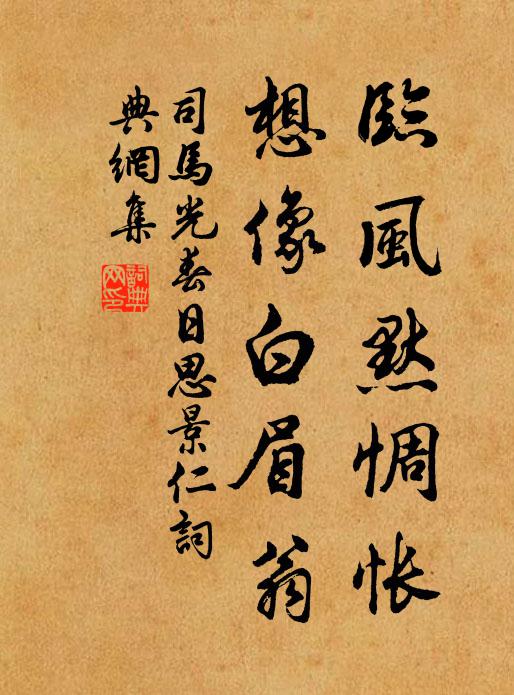 臨風默惆悵
想像白眉翁
司馬光春日思景仁詞
典網集
詞典網印